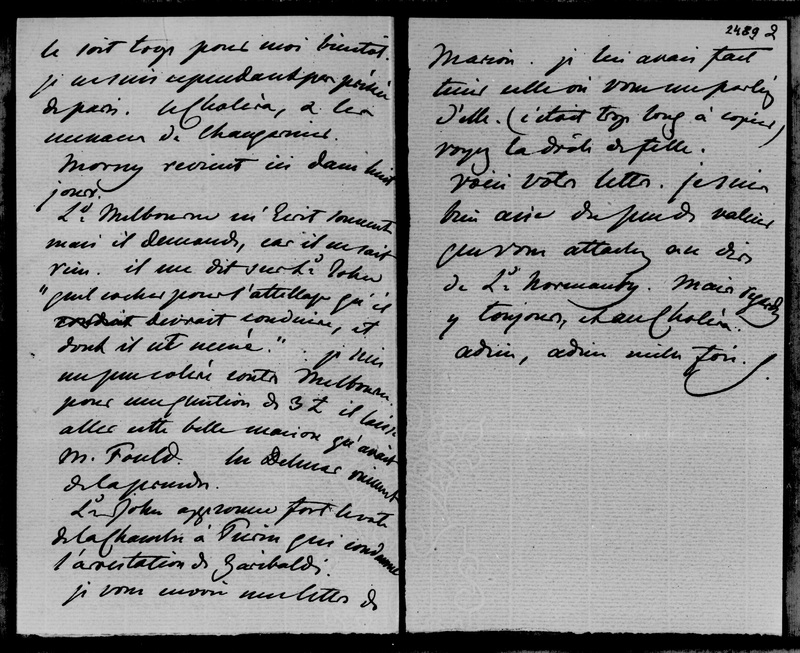 le soit trop pour moi bientôt.
je ne suis cependant pas pressée
de paris. le Choléra, & les
menaces de Changarnier.
Morny revient ici dans huit
jours.
Ld Melbourne m'écrit souvent
mais il demande, car il ne sait
rien. il me dit sur Ld John
"quel cocher pour l'attelage qu'il
devrait conduire, et
dont il est mené." je suis
un peu colère contre Melbourne,
pour une question de 3 £ il laisse
aller cette belle maison qu'avait
M. Fould. les Delmar viennent
de la prendre.
Ld John approuve fort le vote
de la Chambre à Turin qui condamne
l'arrestation de Garibaldi.
je vous envoie une lettre de
2489 2
Marion. je lui avais fait
tenir celle où vous me parliez
d'elle. (c'était trop long à copier)
voyez la drôle de fille.
Voici votre lettre. je suis
bien aise du peu de valeur
que vous attachez au dire
de Ld Normanby. Mais regardez
y toujours, et au Choléra.
adieu, adieu mille fois.